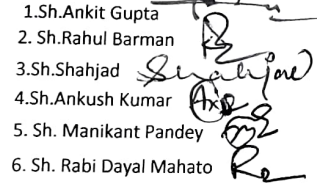 1.Sh.Ankit Gupta
2. Sh.Rahul Barman
3.Sh.Shahjad Shahjad
4.Sh.Ankush Kumar
5. Sh. Manikant Pandey
6. Sh. Rabi Dayal Mahato